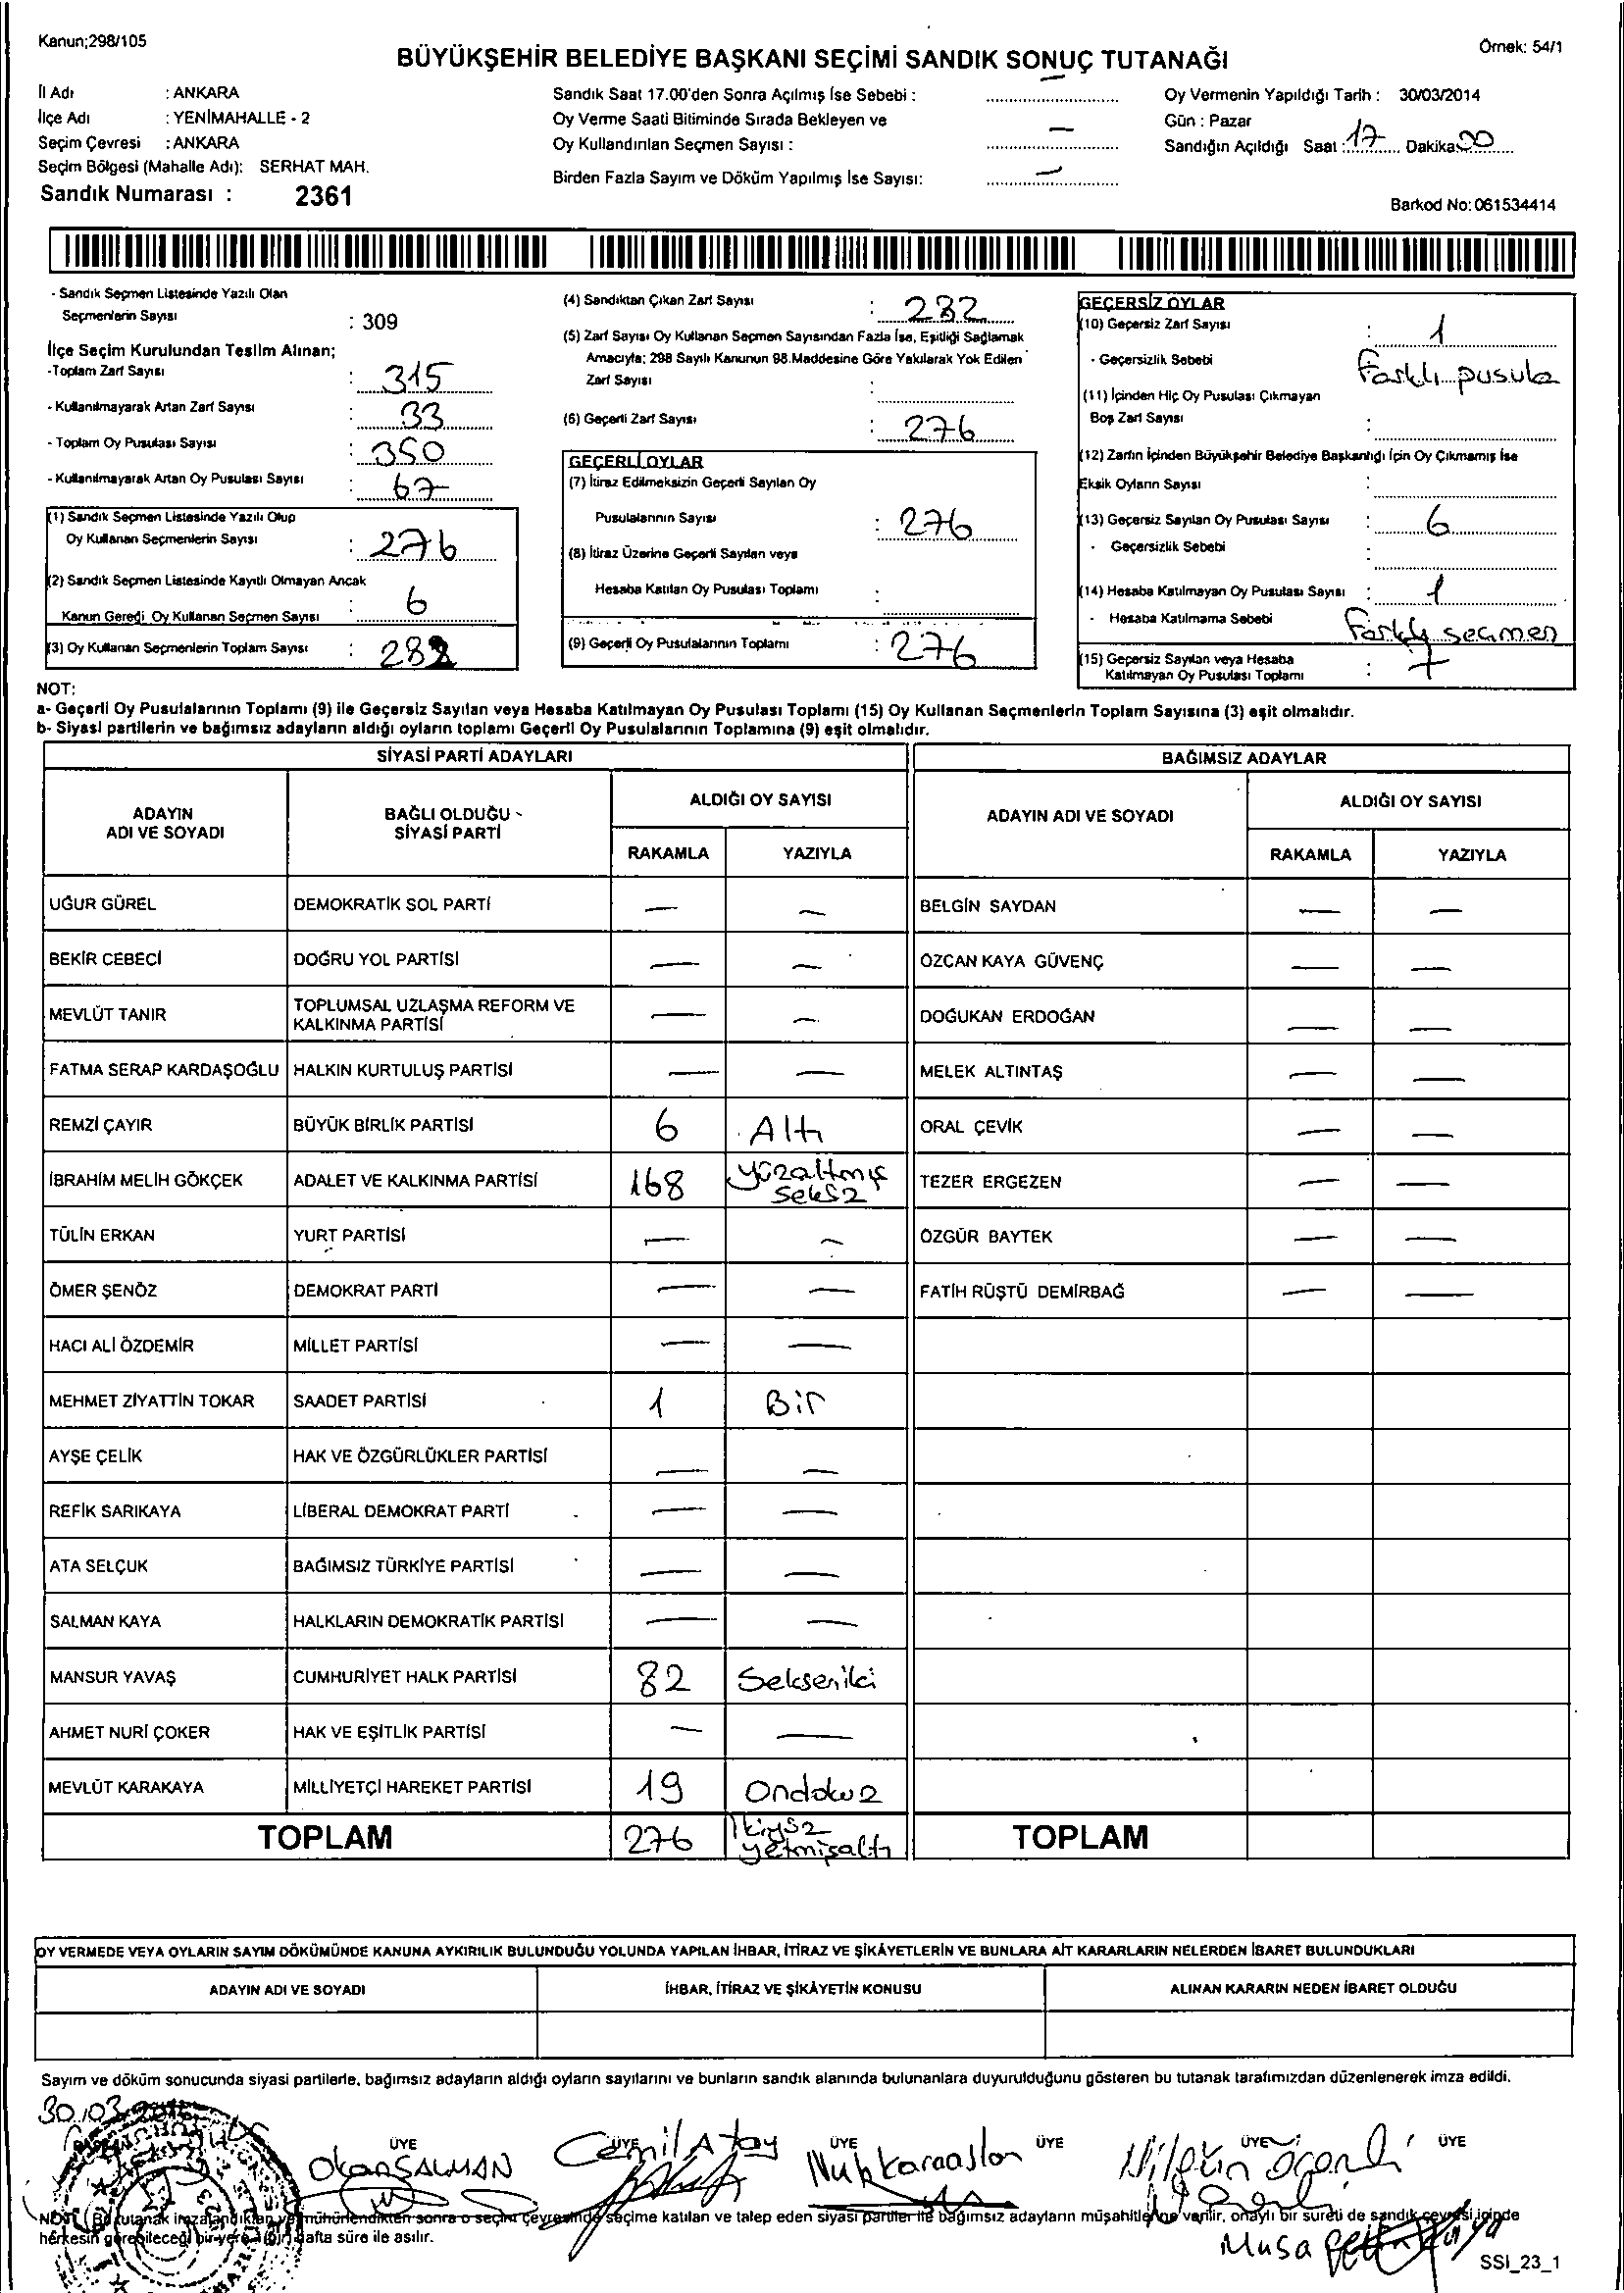 Kanun;298/105
Örnek: 54/1
BÜYÜKŞEHİR BELEDİYE BAŞKANI SEÇİMİ SANDIK SONUÇ TUTANAĞI
İl Adı : ANKARA
İlçe Adı : YENİMAHALLE - 2
Seçim Çevresi : ANKARA
Seçim Bölgesi (Mahalle Adı): SERHAT MAH.
Sandık Numarası : 2361
Sandık Saat 17.00'den Sonra Açılmış İse Sebebi : —
Oy Verme Saati Bitiminde Sırada Bekleyen ve
Oy Kullandırılan Seçmen Sayısı : —
Birden Fazla Sayım ve Döküm Yapılmış İse Sayısı: —
Oy Vermenin Yapıldığı Tarih : 30/03/2014
Gün : Pazar
Sandığın Açıldığı Saat : 17 Dakika 00
Barkod No: 061534414
- Sandık Seçmen Listesinde Yazılı Olan
Seçmenlerin Sayısı : 309
İlçe Seçim Kurulundan Teslim Alınan;
-Toplam Zarf Sayısı : 315
- Kullanılmayarak Artan Zarf Sayısı : 33
- Toplam Oy Pusulası Sayısı : 350
- Kullanılmayarak Artan Oy Pusulası Sayısı : 67
(1) Sandık Seçmen Listesinde Yazılı Olup
Oy Kullanan Seçmenlerin Sayısı : 276
(2) Sandık Seçmen Listesinde Kayıtlı Olmayan Ancak
Kanun Gereği Oy Kullanan Seçmen Sayısı : 6
(3) Oy Kullanan Seçmenlerin Toplam Sayısı : 282
(4) Sandıktan Çıkan Zarf Sayısı : 282
(5) Zarf Sayısı Oy Kullanan Seçmen Sayısından Fazla İse, Eşitliği Sağlamak
Amacıyla; 298 Sayılı Kanunun 98.Maddesine Göre Yakılarak Yok Edilen
Zarf Sayısı :
(6) Geçerli Zarf Sayısı : 276
GEÇERLİ OYLAR
(7) İtiraz Edilmeksizin Geçerli Sayılan Oy
Pusulalarının Sayısı : 276
(8) İtiraz Üzerine Geçerli Sayılan veya
Hesaba Katılan Oy Pusulası Toplamı :
(9) Geçerli Oy Pusulalarının Toplamı : 276
GEÇERSİZ OYLAR
(10) Geçersiz Zarf Sayısı : 1
- Geçersizlik Sebebi Farklı pusula
(11) İçinden Hiç Oy Pusulası Çıkmayan
Boş Zarf Sayısı :
(12) Zarfın İçinden Büyükşehir Belediye Başkanlığı İçin Oy Çıkmamış İse
Eksik Oyların Sayısı :
(13) Geçersiz Sayılan Oy Pusulası Sayısı : 6
- Geçersizlik Sebebi :
(14) Hesaba Katılmayan Oy Pusulası Sayısı : 1
- Hesaba Katılmama Sebebi Farklı seçmen
(15) Geçersiz Sayılan veya Hesaba
Katılmayan Oy Pusulası Toplamı : 7
NOT:
a- Geçerli Oy Pusulalarının Toplamı (9) ile Geçersiz Sayılan veya Hesaba Katılmayan Oy Pusulası Toplamı (15) Oy Kullanan Seçmenlerin Toplam Sayısına (3) eşit olmalıdır.
b- Siyasi partilerin ve bağımsız adayların aldığı oyların toplamı Geçerli Oy Pusulalarının Toplamına (9) eşit olmalıdır.
SİYASİ PARTİ ADAYLARI
BAĞIMSIZ ADAYLAR
ADAYIN
ADI VE SOYADI
BAĞLI OLDUĞU
SİYASİ PARTİ
ALDIĞI OY SAYISI
RAKAMLA YAZIYLA
ADAYIN ADI VE SOYADI
ALDIĞI OY SAYISI
RAKAMLA YAZIYLA
UĞUR GÜREL DEMOKRATİK SOL PARTİ — — BELGİN SAYDAN — —
BEKİR CEBECİ DOĞRU YOL PARTİSİ — — ÖZCAN KAYA GÜVENÇ — —
MEVLÜT TANIR TOPLUMSAL UZLAŞMA REFORM VE
KALKINMA PARTİSİ — — DOĞUKAN ERDOĞAN — —
FATMA SERAP KARDAŞOĞLU HALKIN KURTULUŞ PARTİSİ — — MELEK ALTINTAŞ — —
REMZİ ÇAYIR BÜYÜK BİRLİK PARTİSİ 6 Altı ORAL ÇEVİK — —
İBRAHİM MELİH GÖKÇEK ADALET VE KALKINMA PARTİSİ 168 yüzaltmış
seksz TEZER ERGEZEN — —
TÜLİN ERKAN YURT PARTİSİ — — ÖZGÜR BAYTEK — —
ÖMER ŞENÖZ DEMOKRAT PARTİ — — FATİH RÜŞTÜ DEMİRBAĞ — —
HACI ALİ ÖZDEMİR MİLLET PARTİSİ — —
MEHMET ZİYATTİN TOKAR SAADET PARTİSİ 1 Bir
AYŞE ÇELİK HAK VE ÖZGÜRLÜKLER PARTİSİ — —
REFİK SARIKAYA LİBERAL DEMOKRAT PARTİ — —
ATA SELÇUK BAĞIMSIZ TÜRKİYE PARTİSİ — —
SALMAN KAYA HALKLARIN DEMOKRATİK PARTİSİ — —
MANSUR YAVAŞ CUMHURİYET HALK PARTİSİ 82 Sekseniki
AHMET NURİ ÇOKER HAK VE EŞİTLİK PARTİSİ — —
MEVLÜT KARAKAYA MİLLİYETÇİ HAREKET PARTİSİ 19 Ondokuz
TOPLAM 276 İkiyüz
yetmişaltı TOPLAM
OY VERMEDE VEYA OYLARIN SAYIM DÖKÜMÜNDE KANUNA AYKIRILIK BULUNDUĞU YOLUNDA YAPILAN İHBAR, İTİRAZ VE ŞİKÂYETLERİN VE BUNLARA AİT KARARLARIN NELERDEN İBARET BULUNDUKLARI
ADAYIN ADI VE SOYADI İHBAR, İTİRAZ VE ŞİKÂYETİN KONUSU ALINAN KARARIN NEDEN İBARET OLDUĞU
Sayım ve döküm sonucunda siyasi partilerle, bağımsız adayların aldığı oyların sayılarını ve bunların sandık alanında bulunanlara duyurulduğunu gösteren bu tutanak tarafımızdan düzenlenerek imza edildi.
30.03.2014
ÜYE ÜYE ÜYE ÜYE ÜYE ÜYE
Okan SALMAN Cemil Atay Nuh Karaaslan Nilgün
NOT: Bu tutanak imzalandıktan ve mühürlendikten sonra o seçim çevresinde seçime katılan ve talep eden siyasi partiler ile bağımsız adayların müşahitlerine verilir, onaylı bir sureti de sandık çevresi içinde
herkesin görebileceği bir yere 1 (bir) hafta süre ile asılır.
Musa
SSI_23_1